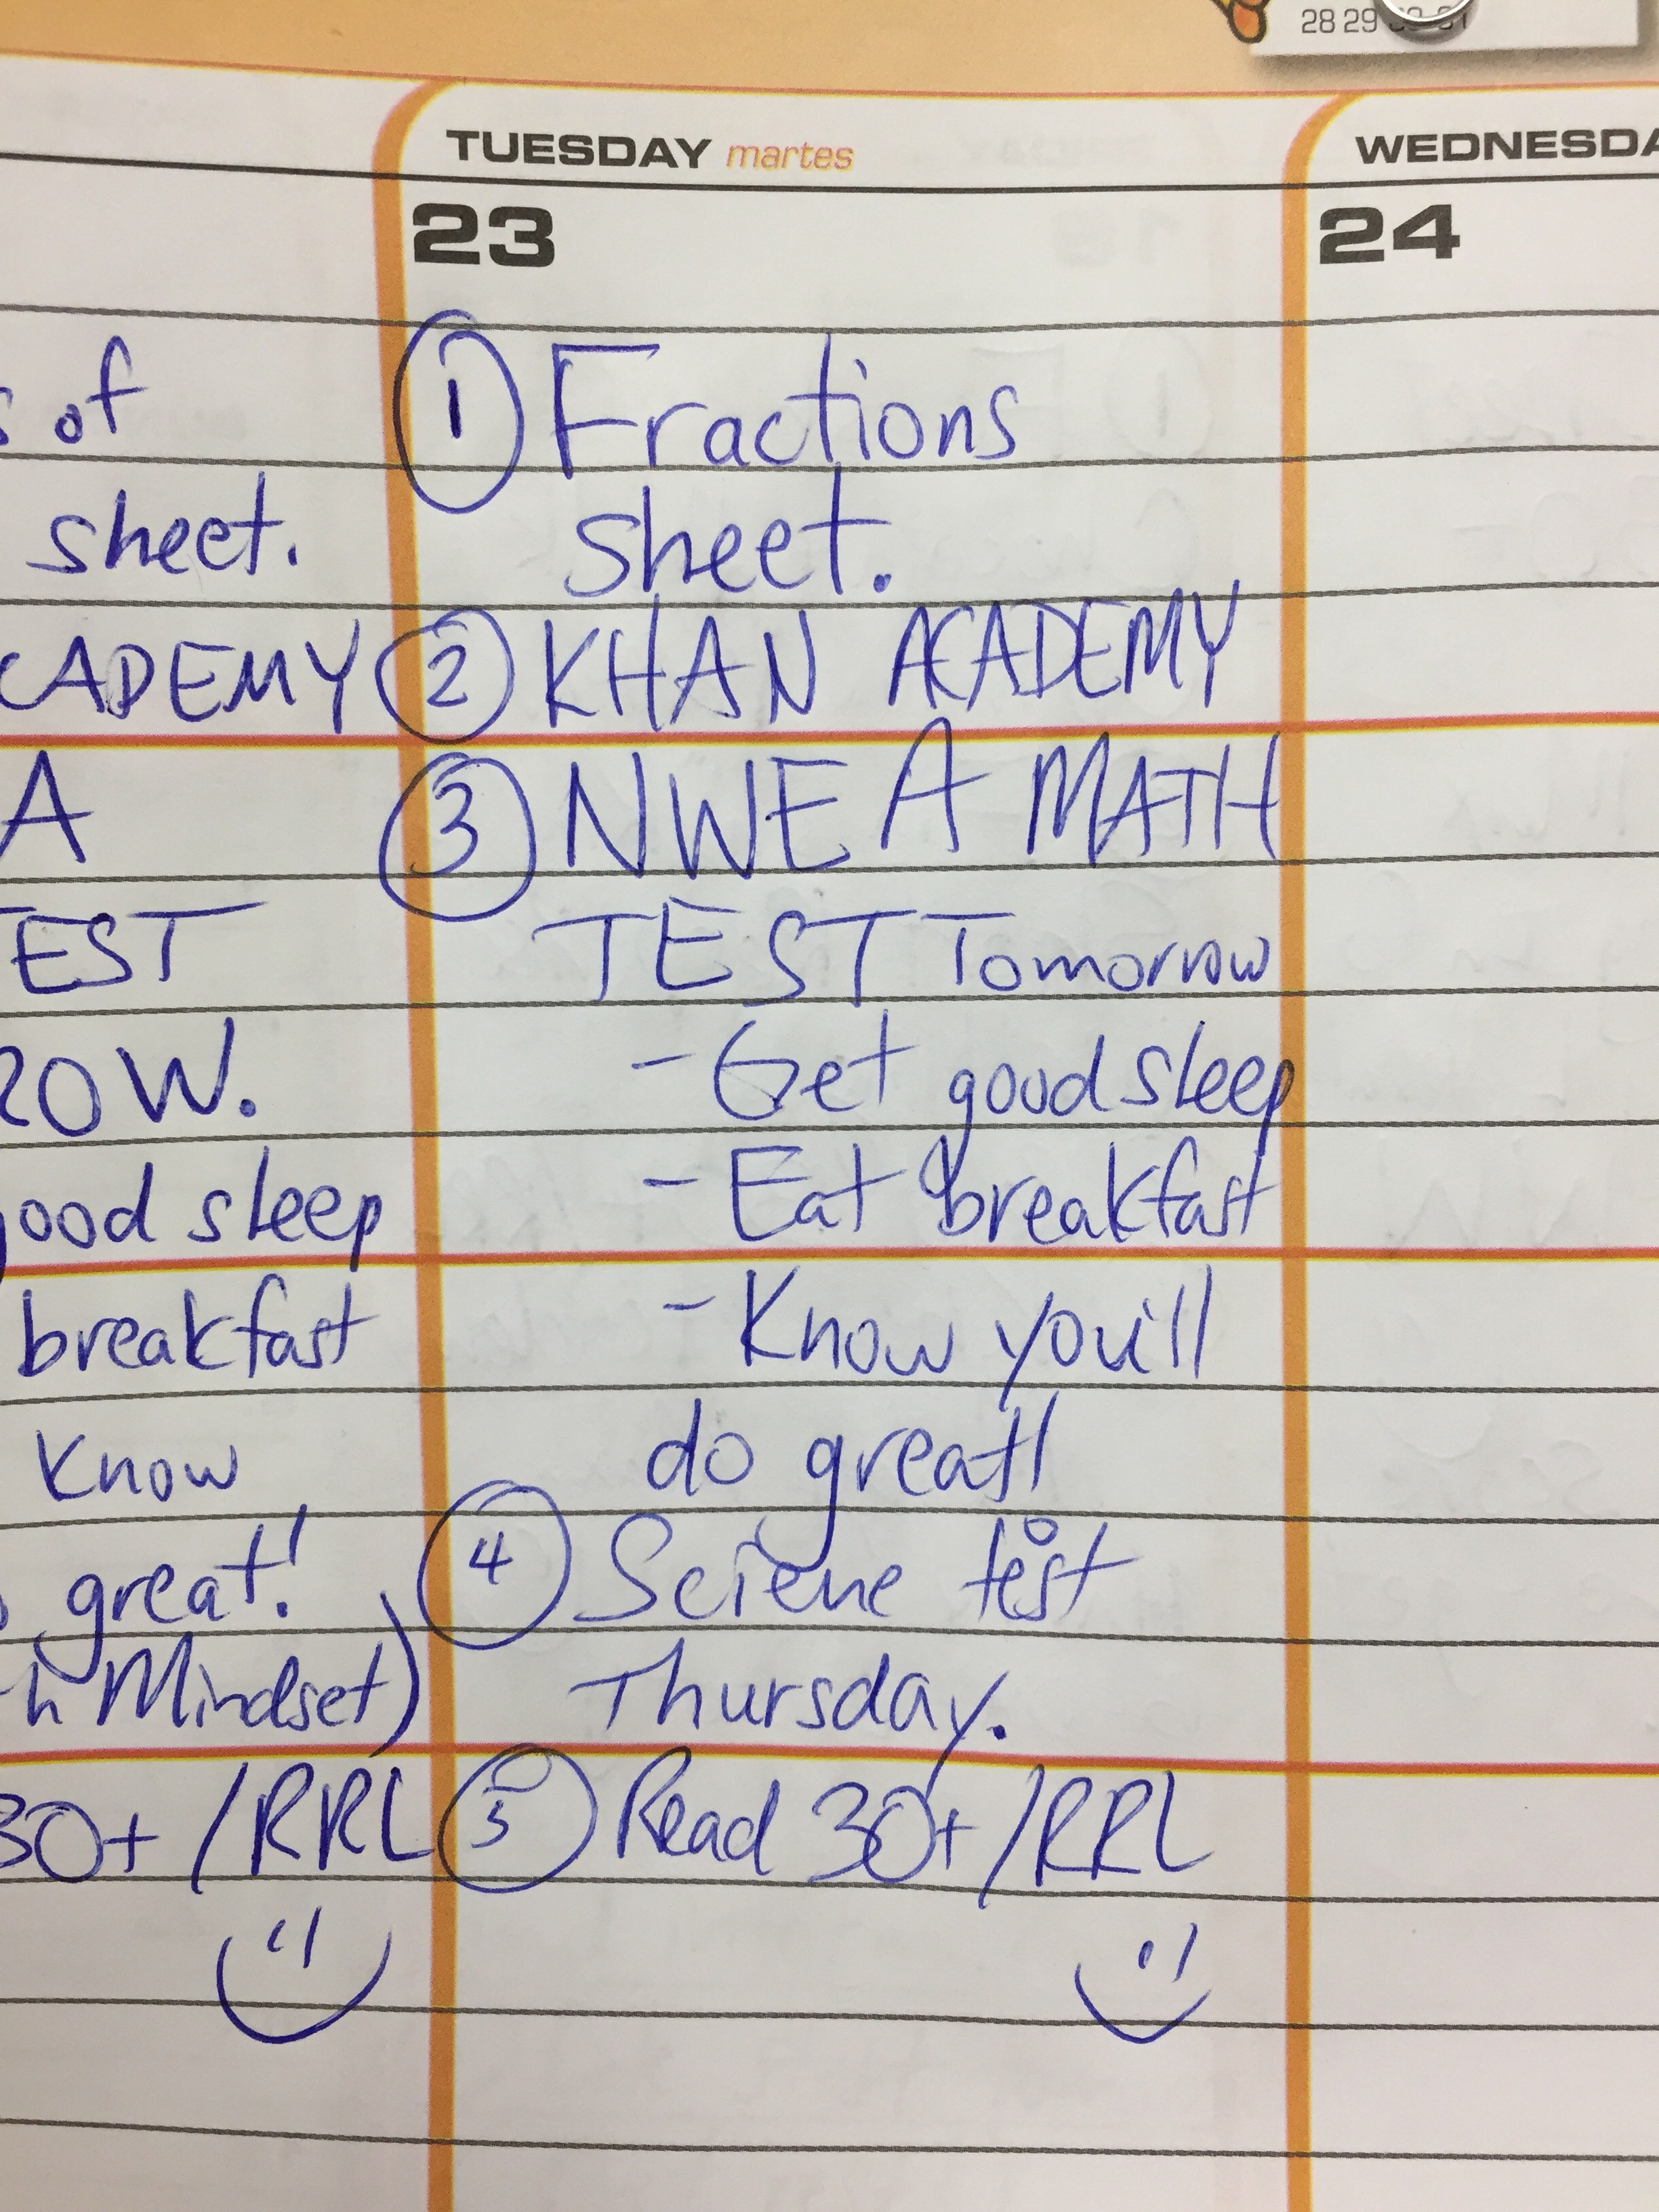 28 29 30 31
TUESDAY martes
WEDNESDA
23
24
s of
sheet.
CADEMY
A
TEST
ROW.
good sleep
breakfast
Know
great!
h Mindset)
30+ /RRL
1 Fractions
sheet.
2 KHAN ACADEMY
3 NWEA MATH
TEST Tomorrow
- Get good sleep
- Eat breakfast
- Know you'll
do great!
4 Sciene test
Thursday.
5 Read 30+/RRL